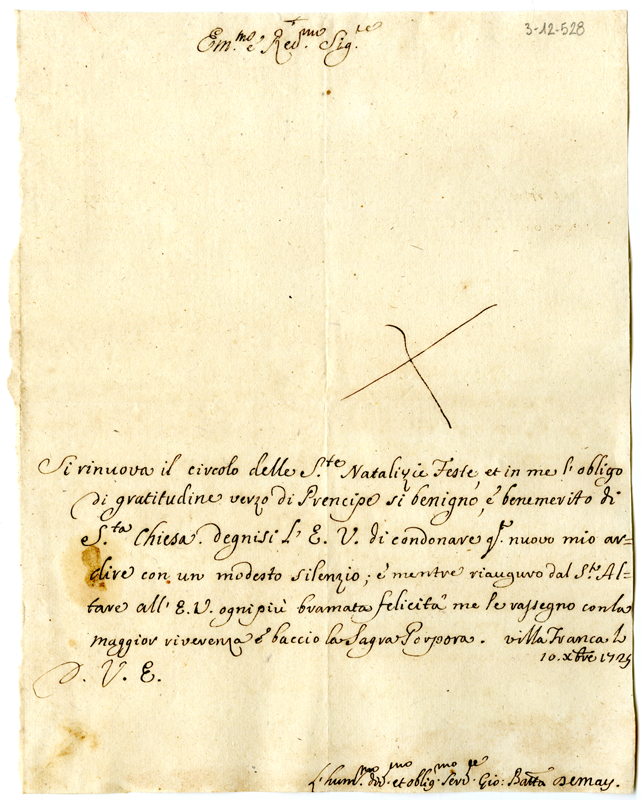 3-12-528
Em.mo e Reu.mo Sig.re
Si rinuova il circolo delle S.te Natalizie Feste, et in me l'obligo
di gratitudine verzo di Prencipe si benigno, è benemerito di
S.ta Chiesa. degnisi l'E. V. di condonare q.t nuovo mio ar-
dire con un modesto silenzio; è mentre riauguro dal S.to Al-
tare all'E.V. ogni più bramata felicità me le rassegno con la
maggior riverenza è baccio la Sagra Porpora. villa Franca li
10. xbre 1725
D. V. E.
L'hum.mo div.mo et oblig.mo serv.re Gio: Batta Demay.